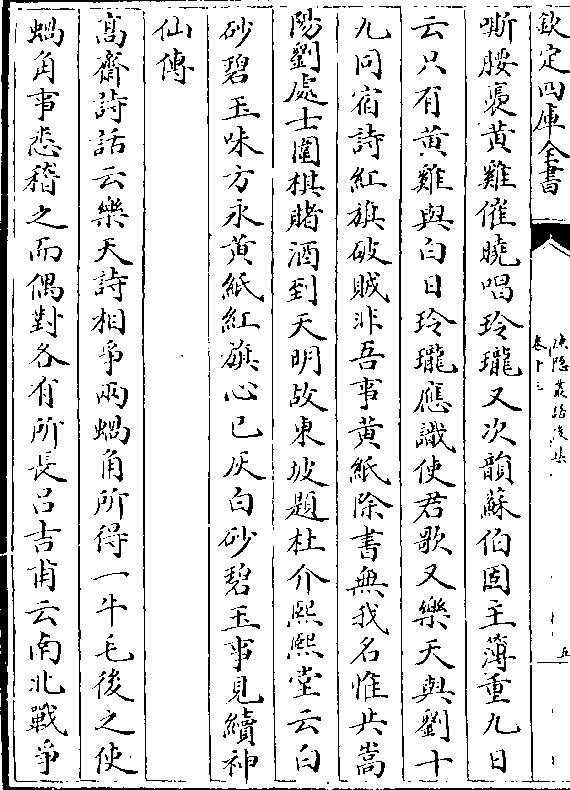 欽定四庫全書
漁隱叢話後集
卷十三
五
嘶腰褭黄雞催曉唱玲瓏又次韻蘇伯固主簿重九日
云只有黄雞與白日玲瓏應識使君歌又樂天與劉十
九同宿詩紅旗破賊非吾事黄紙除書無我名惟共嵩
陽劉處士圍棋賭酒到天明故東坡題杜介熙熙堂云白
砂碧玉味方永黄紙紅旗心已灰白砂碧玉事見續神
仙傳
高齋詩話云樂天詩相爭兩蝸角所得一牛毛後之使
蝸角事悉稽之而偶對各有所長吕吉甫云南北戰爭